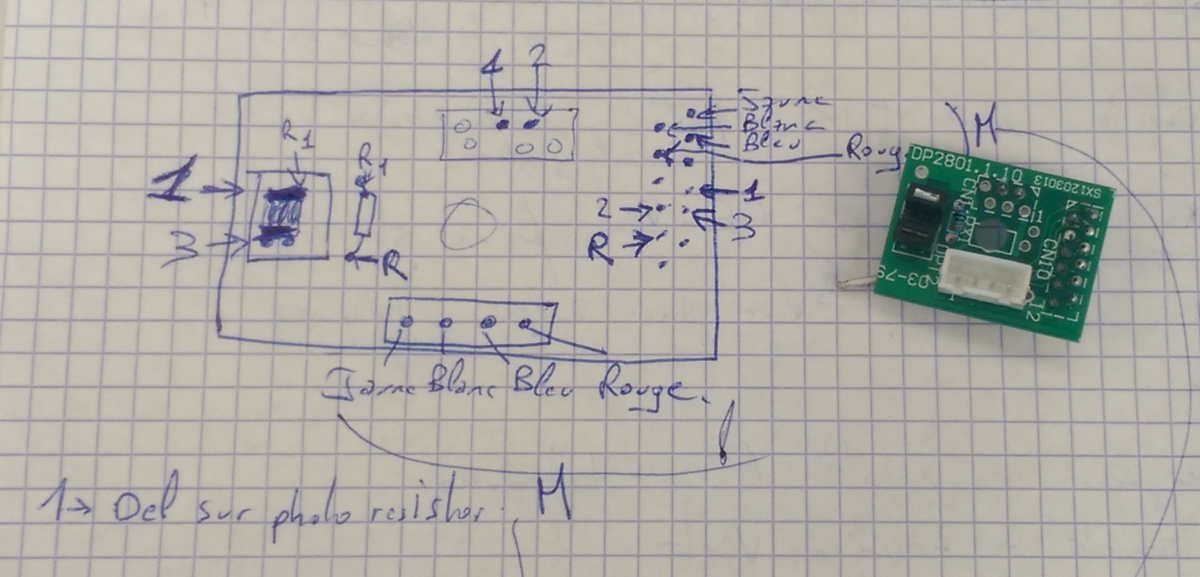 4 2
R1
R1
1
3
R
Jaune
Blanc
Bleu
Rouge
1
2
3
R
Jaune Blanc Bleu Rouge.
M
1→ Del sur photo resistor.
M
DP2801.1.10
SX1203013
CNTO
1
12